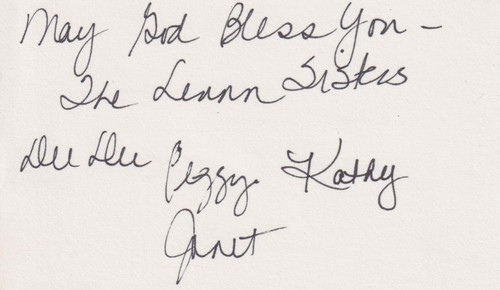 May God Bless You –
The Lennon Sisters
Dee Dee Peggy Kathy
Janet